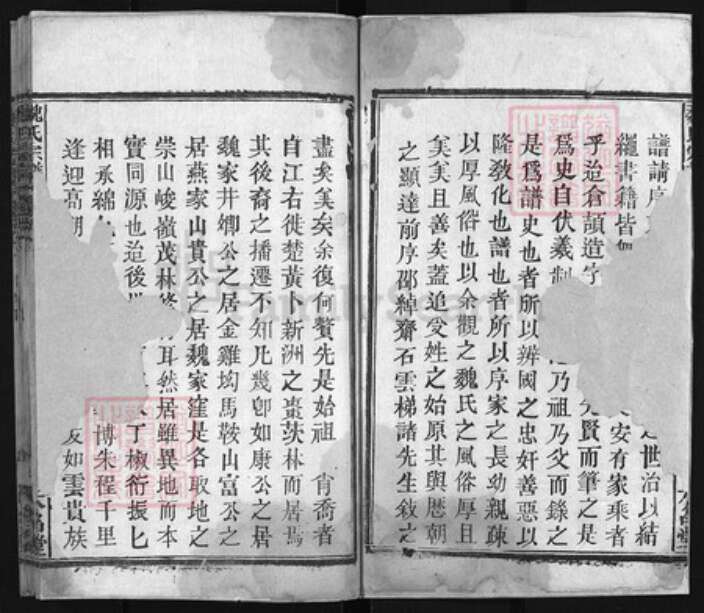 譜講序
世治以結
繩書籍皆無
安有家乘者
乎迨倉頡造字
先賢而筆之是
為史自伏羲制
乃祖乃父而錄之
是爲譜史也者所以辨國之忠奸善惡以
隆敎化也譜也者所以序家之長幼親疎
以厚風俗也以余觀之魏氏之風俗厚且
矣美且善矣蓋追受姓之始原其與歷朝
之顯達前序邵綽齋石雲梯諸先生敘之
盡矣美矣余復何贅先是始祖 甯喬者
自江右徙楚黃卜新洲之棗茨林而居焉
其後裔之播遷不知凡幾卽如康公之居
魏家井卿公之居金雞坳馬鞍山富公之
居燕家山貴公之居魏家窪是各取地之
崇山峻嶺茂林修竹耳然居雖異地而本
實同源也迨後世
丁椒衍振匕
相承綿
博朱程千里
逢迎高朋
友如雲貴族
魏氏宗譜